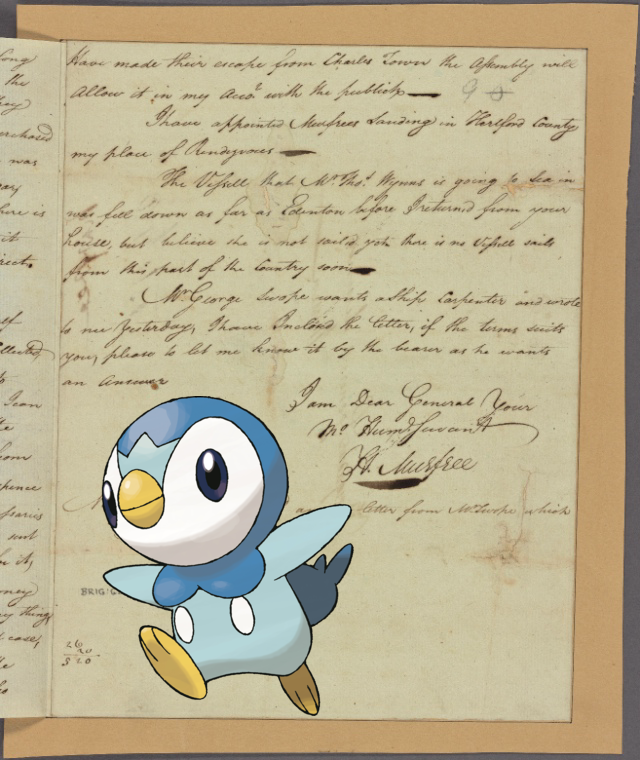 Have made their escape from Charles Town the Assembly will
Allow it in my Acco.t with the publick
9
I have appointed Murfrees Landing in Hertford County
my place of Rendezvous
The Vessell that Mr. Tho.s Wynns is going to Sea in
was fell down as far as Edenton before I returned from your
house, but believe she is not sail'd yet, there is no Vessell sails
from this part of the Country soon
Mr. George Swope wants a Ship Carpenter and wrote
to me Yesterday, I have Inclosd the letter, if the terms suits
you, please to let me know it by the bearer as he wants
an answer
I am Dear General Your
Mo. Hum.l Servant
H. Murfree
letter from Mr. Swope which
BRIG: G
26
20
5 20
long
the
purchased
was
here is
it
direct.
of
Collected,
I can
from
sent
in it,
money
any thing
case,